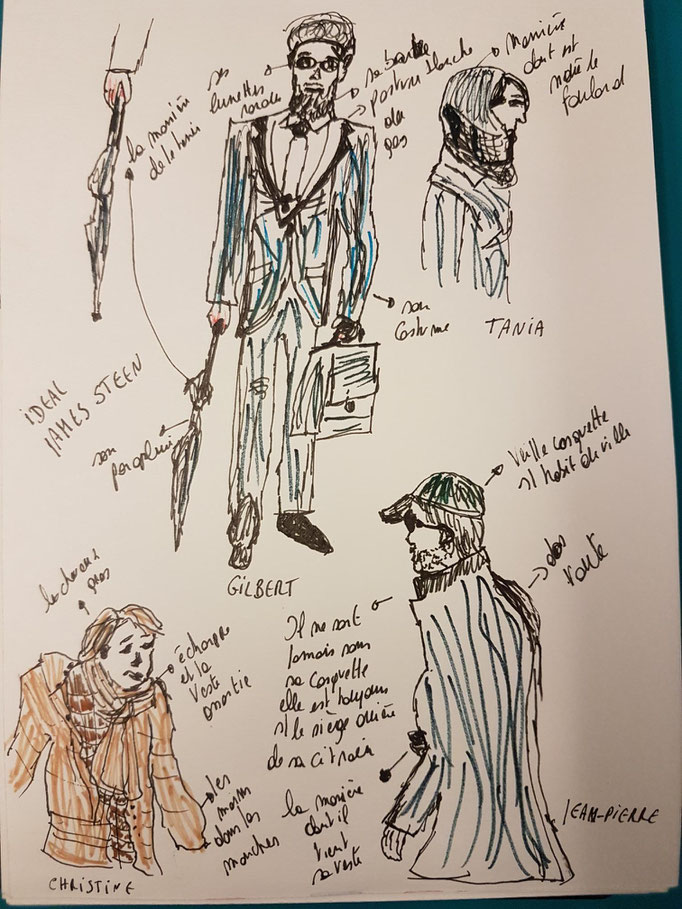 la manière
de le tenir
ses
lunettes
rondes
sa barbe
blanche
posture
du
gas
manière
dont est
notée le
foulard
son
costume
TANIA
IDEAL
JAMES STEEN
son
parapluie
GILBERT
Vieille casquette
et habit de ville
dos
Vouté
les cheveux
gras
écharpe
et la
veste
assortie
les
mains
dans les
manches
Il ne sort
jamais sans
sa casquette
elle est toujours
sur le siège arrière
de sa citroën
la manière
dont il
tient
sa veste
JEAN-PIERRE
CHRISTINE